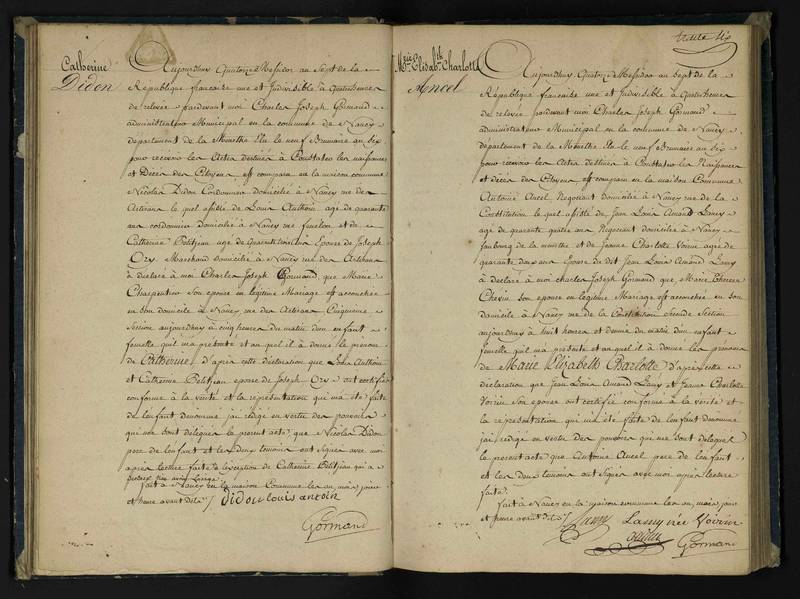 Catherine
Didon
Aujourdhuy Quatorze Messidor au Sept de la
République françoise une et Indivisible à Quatre heures
de relevée pardevant moi Charles Joseph Gormand
administrateur Municipal en la commune de Nancy
departement de la Meurthe Elu le neuf Brumaire an Six
pour recevoir les Actes destinés à Constater les naissances
et Décès des Citoyens est comparu en la maison commune
Nicolas Didon Cordonnier domicilié à Nancy rue des
Artisans le quel assisté de Louis Anthoin agé de quarante
ans cordonnier domicilié à Nancy rue et de
Catherine Petitjean agée de Quarante ans Epouse de Joseph
Ory Marchand domiciliée à Nancy rue des Artisans
à déclaré à moi Charles Joseph Gormand que Marie
Charpentier son epouse en légitime Mariage est accouchée
en son domicile à Nancy rue des Artisans Cinquieme
Section aujourdhuy à cinq heures du matin d'un enfant
femelle quil m'a présenté et au quel il a donné le prénom
de Catherine d'après cette déclaration que Louis Anthoin
et Catherine Petitjean epouse de Joseph Ory ont certifié
conforme à la vérité et la représentation qui m'a été faite
de l'enfant denommé j'ai rédigé en vertu des pouvoirs
qui me sont délégués le présent acte que Nicolas Didon
pere de l'enfant et les Deux temoins ont signés avec moi
après lecture faite à l'exception de Catherine Petitjean qui a
fait à Nancy en la maison Commune les an, mois, jour
et heure avant dits
Didon louis antoin
Gormand
Marie Elisabeth Charlotte
Ancel
Aujourdhuy Quatorze Messidor au sept de la
République françoise une et Indivisible à Quatre heures
de relevée pardevant moi Charles Joseph Gormand
administrateur Municipal en la commune de Nancy
departement de la Meurthe Elu le neuf Brumaire an Six
pour recevoir les Actes destinés à Constater les Naissances
et décès des Citoyens est comparu en la maison Commune
Antoine Ancel Negociant domicilié à Nancy rue de la
Constitution le quel assisté de Jean Louis Amand Lamy
agé de quarante quatre ans Negociant domicilié à Nancy
faubourg de la meurthe et de Jeanne Charlotte Voirin agée de
quarante deux ans Epouse du dit Jean Louis Amand Lamy
à déclaré à moi charles Joseph Gormand que Marie Thérèse
son epouse en légitime Mariage est accouchée en son
domicile à Nancy rue de la Constitution seconde Section
aujourdhuy à huit heures et demie du matin d'un enfant
femelle quil m'a présenté et au quel il a donné les prénoms
de Marie Elizabeth Charlotte d'après cette
déclaration que Jean Louis Amand Lamy et Jeanne Charlotte
Voirin son epouse ont certifié conforme à la vérité et
la représentation qui m'a été faite de l'enfant denommé
j'ai rédigé en vertu des pouvoirs qui me sont délégués
le présent acte que Antoine Ancel pere de l'enfant
et les deux temoins ont signés avec moi après lecture
faite
fait à Nancy en la maison commune les an, mois, jour
et heure avant dits
Lamy née Voirin
Gormand